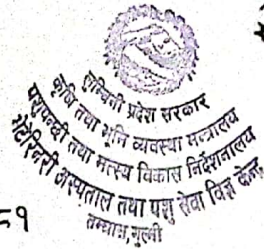 लुम्बिनी प्रदेश सरकार
कृषि तथा भूमि व्यवस्था मन्त्रालय
पशुपन्छी तथा मत्स्य विकास निर्देशनालय
भेटेरिनरी अस्पताल तथा पशु सेवा विज्ञ केन्द्र
तम्घास, गुल्मी
८१